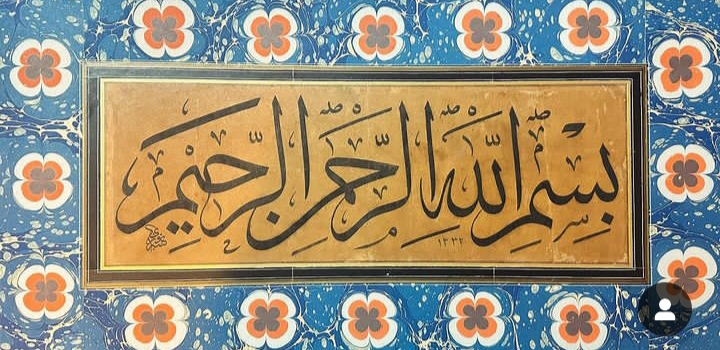 بِسْمِ اللّٰهِ الرَّحْمٰنِ الرَّحِيمِ
١٣٣٢